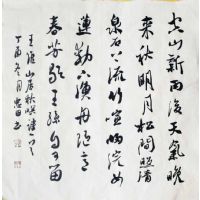 空山新雨後天氣晚
來秋明月松間照清
泉石上流竹喧歸浣女
蓮動下漁舟随意
春芳歇王孫自可留
王维山居秋暝诗一首
丁酉冬月忠田书